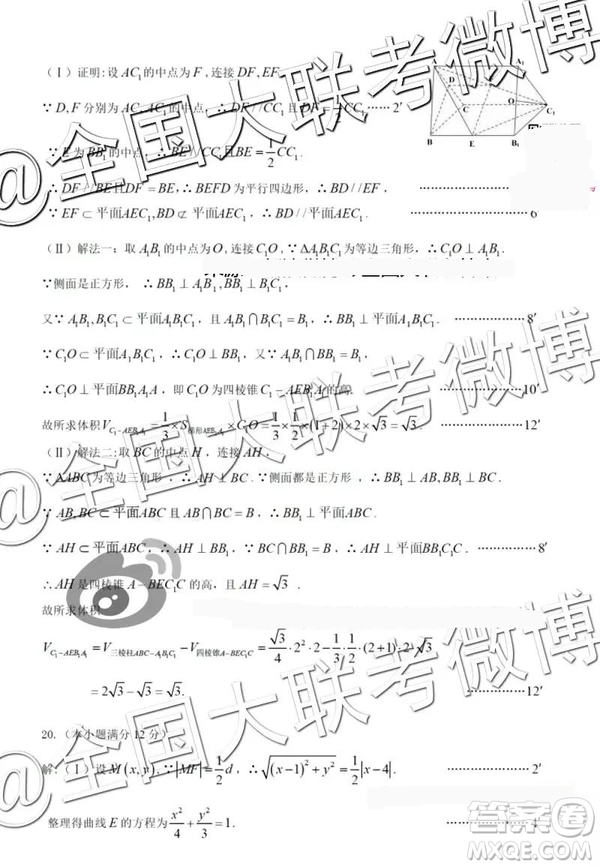 (Ⅰ)证明:设AC₁的中点为F,连接DF,EF.
∵D,F分别为AC,AC₁的中点,∴DF//CC₁且DF=1/2CC₁ ……2′
∵E为BB₁的中点,∴BE//CC₁且BE=1/2CC₁.
∴DF//BE且DF=BE,∴BEFD为平行四边形,∴BD//EF, ……………
∵EF⊂平面AEC₁,BD⊄平面AEC₁,∴BD//平面AEC₁. ……………6
(Ⅱ)解法一:取A₁B₁的中点为O,连接C₁O,∵ΔA₁B₁C₁为等边三角形,∴C₁O⊥A₁B₁.
∵侧面是正方形, ∴BB₁⊥A₁B₁,BB₁⊥B₁C₁,
又∵A₁B₁,B₁C₁⊂平面A₁B₁C₁,且A₁B₁∩B₁C₁=B₁,∴BB₁⊥平面A₁B₁C₁. ……8′
∵C₁O⊂平面A₁B₁C₁,∴C₁O⊥BB₁,又∵A₁B₁∩BB₁=B₁,
∴C₁O⊥平面BB₁A₁A,即C₁O为四棱锥C₁−AEB₁A₁的高. ……………10′
故所求体积V_{C₁−AEB₁A₁}=1/3×S_{梯形AEB₁A₁}×C₁O=1/3×1/2×(1+2)×2×√3=√3. ……………12′
(Ⅱ)解法二:取BC的中点为H,连接AH,
∵ΔABC为等边三角形,∴AH⊥BC.∵侧面都是正方形,∴BB₁⊥AB,BB₁⊥BC.
∵AB,BC⊂平面ABC且AB∩BC=B,∴BB₁⊥平面ABC.
∵AH⊂平面ABC.∴AH⊥BB₁,∴AH⊥平面BCC₁B₁. ……………8′
∴AH是四棱锥A−BEC₁C的高,且AH=√3.
故所求体积
V_{C₁−AEB₁A₁}=V_{三棱柱ABC−A₁B₁C₁}−V_{四棱锥A−BEC₁C}=√3/4·2²·2−1/3·1/2·(2+1)·2·√3
=2√3−√3=√3. ……………12′
20.(本小题满分12分)
解:(Ⅰ)设M(x,y),∵|MF|=1/2d,∴√((x−1)²+y²)=1/2|x−4|. ……………2′
整理得曲线E的方程为x²/4+y²/3=1. ……………4′
A₁
D
C
O
C₁
B
E
B₁
@全国大联考微博
@全国大联考微博
@全国大联考微博
答案卷
MXQE.COM